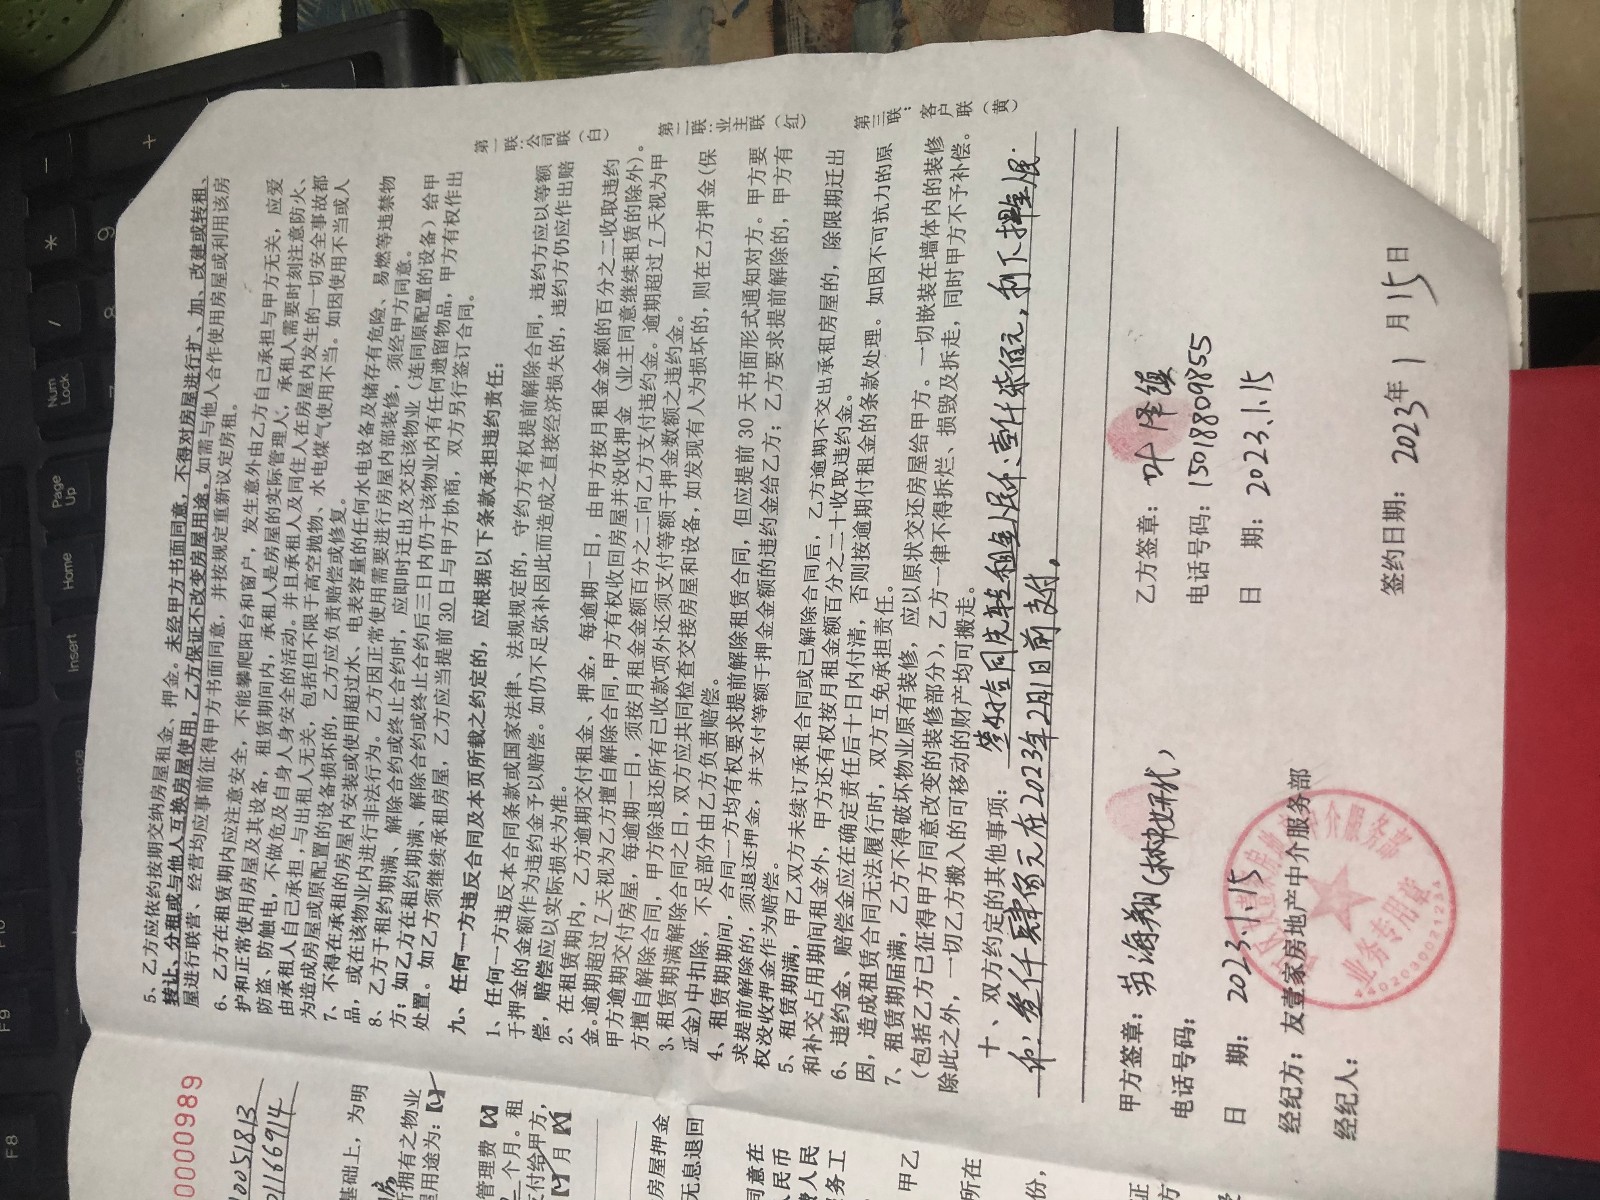 5、乙方应依约按期交纳房屋租金、押金。未经甲方书面同意,不得对房屋进行扩、加、改建或转租、
转让、分租或与他人互换房屋使用,乙方保证不改变房屋用途。如需与他人合作使用房屋或利用该房
屋进行联营、经营均应事前征得甲方书面同意,并按规定重新议定房租。
6、乙方在租赁期内应注意安全,不能攀爬阳台和窗户,发生意外由乙方自已承担与甲方无关,应爱
护和正常使用房屋及其设备,租赁期间内,承租人是房屋的实际管理人,承租人需要时刻注意防火、
防盗、防触电,不做危及自身人身安全的活动。并且承租人及同住人在房屋内发生的一切安全事故都
由承租人自己承担,与出租人无关,包括但不限于高空抛物、水电煤气使用不当。如因使用不当或人
为造成房屋或原配置的设备损坏的,乙方应负责赔偿或修复。
7、不得在承租的房屋内安装或使用超过水、电表容量的任何水电设备及储存有危险、易燃等违禁物
品,或在该物业内进行非法行为。乙方因正常使用需要进行房屋内部装修,须经甲方同意。
8、乙方于租约期满、解除合约或终止合约时,应即时迁出及交还该物业(连同原配置的设备)给甲
方;如乙方在租约期满、解除合约或终止合约后三日内仍于该物业内有任何遗留物品,甲方有权作出
处置。如乙方须继续承租房屋,乙方应当提前30日与甲方协商,双方另行签订合同。
九、任何一方违反合同及本页所载之约定的,应根据以下条款承担违约责任:
1、任何一方违反本合同条款或国家法律、法规规定的,守约方有权提前解除合同,违约方应以等额
于押金的金额作为违约金予以赔偿。如仍不足弥补因此而造成之直接经济损失的,违约方仍应作出赔
偿,赔偿应以实际损失为准。
2、在租赁期内,乙方逾期交付租金、押金,每逾期一日,由甲方按月租金金额的百分之二收取违约
金。逾期超过7天视为乙方擅自解除合同,甲方有权收回房屋并没收押金(业主同意继续租赁的除外)。
甲方逾期交付房屋,每逾期一日,须按月租金金额百分之二向乙方支付违约金。逾期超过7天视为甲
方擅自解除合同,甲方除退还所有已收款项外还须支付等额于押金数额之违约金。
3、租赁期满解除合同之日,双方应共同检查交接房屋和设备,如发现有人为损坏的,则在乙方押金(保
证金)中扣除,不足部分由乙方负责赔偿。
4、租赁期期间,合同一方均有权要求提前解除租赁合同,但应提前30天书面形式通知对方。甲方要
求提前解除的,须退还押金,并支付等额于押金金额的违约金给乙方;乙方要求提前解除的,甲方有
权没收押金作为赔偿。
5、租赁期满,甲乙双方未续订承租合同或已解除合同后,乙方逾期不交出承租房屋的,除限期迁出
和补交占用期间租金外,甲方还有权按月租金额百分之二十收取违约金。
6、违约金、赔偿金应在确定责任后十日内付清,否则按逾期付租金的条款处理。如因不可抗力的原
因,造成租赁合同无法履行时,双方互免承担责任。
7、租赁期届满,乙方不得破坏物业原有装修,应以原状交还房屋给甲方。一切嵌装在墙体内的装修
(包括乙方已征得甲方同意改变的装修部分),乙方一律不得拆烂、损毁及拆走,同时甲方不予补偿。
除此之外,一切乙方搬入的可移动的财产均可搬走。
十、双方约定的其他事项:签好合同先车租金
在2023年2月1日前支付。
甲方签章:苏海翔
电话号码:
日 期:2023.1.15
乙方签章:叶泽镇
电话号码:15018809855
日 期:2023.1.15
经纪方:友壹家房地产中介服务部
经纪人:
签约日期:2023年1月15日
业务专用章
4402030021234
第一联:公司联(白)
第二联:业主联(红)
第三联:客户联(黄)
0000989
10051813
01166914
基础上,为明
所拥有之物业
用途为:
管理费
个月。租
支付给甲方,
月
房屋押金
无息退回
同意在
人民币
费人民
务工
甲乙
所在
份,